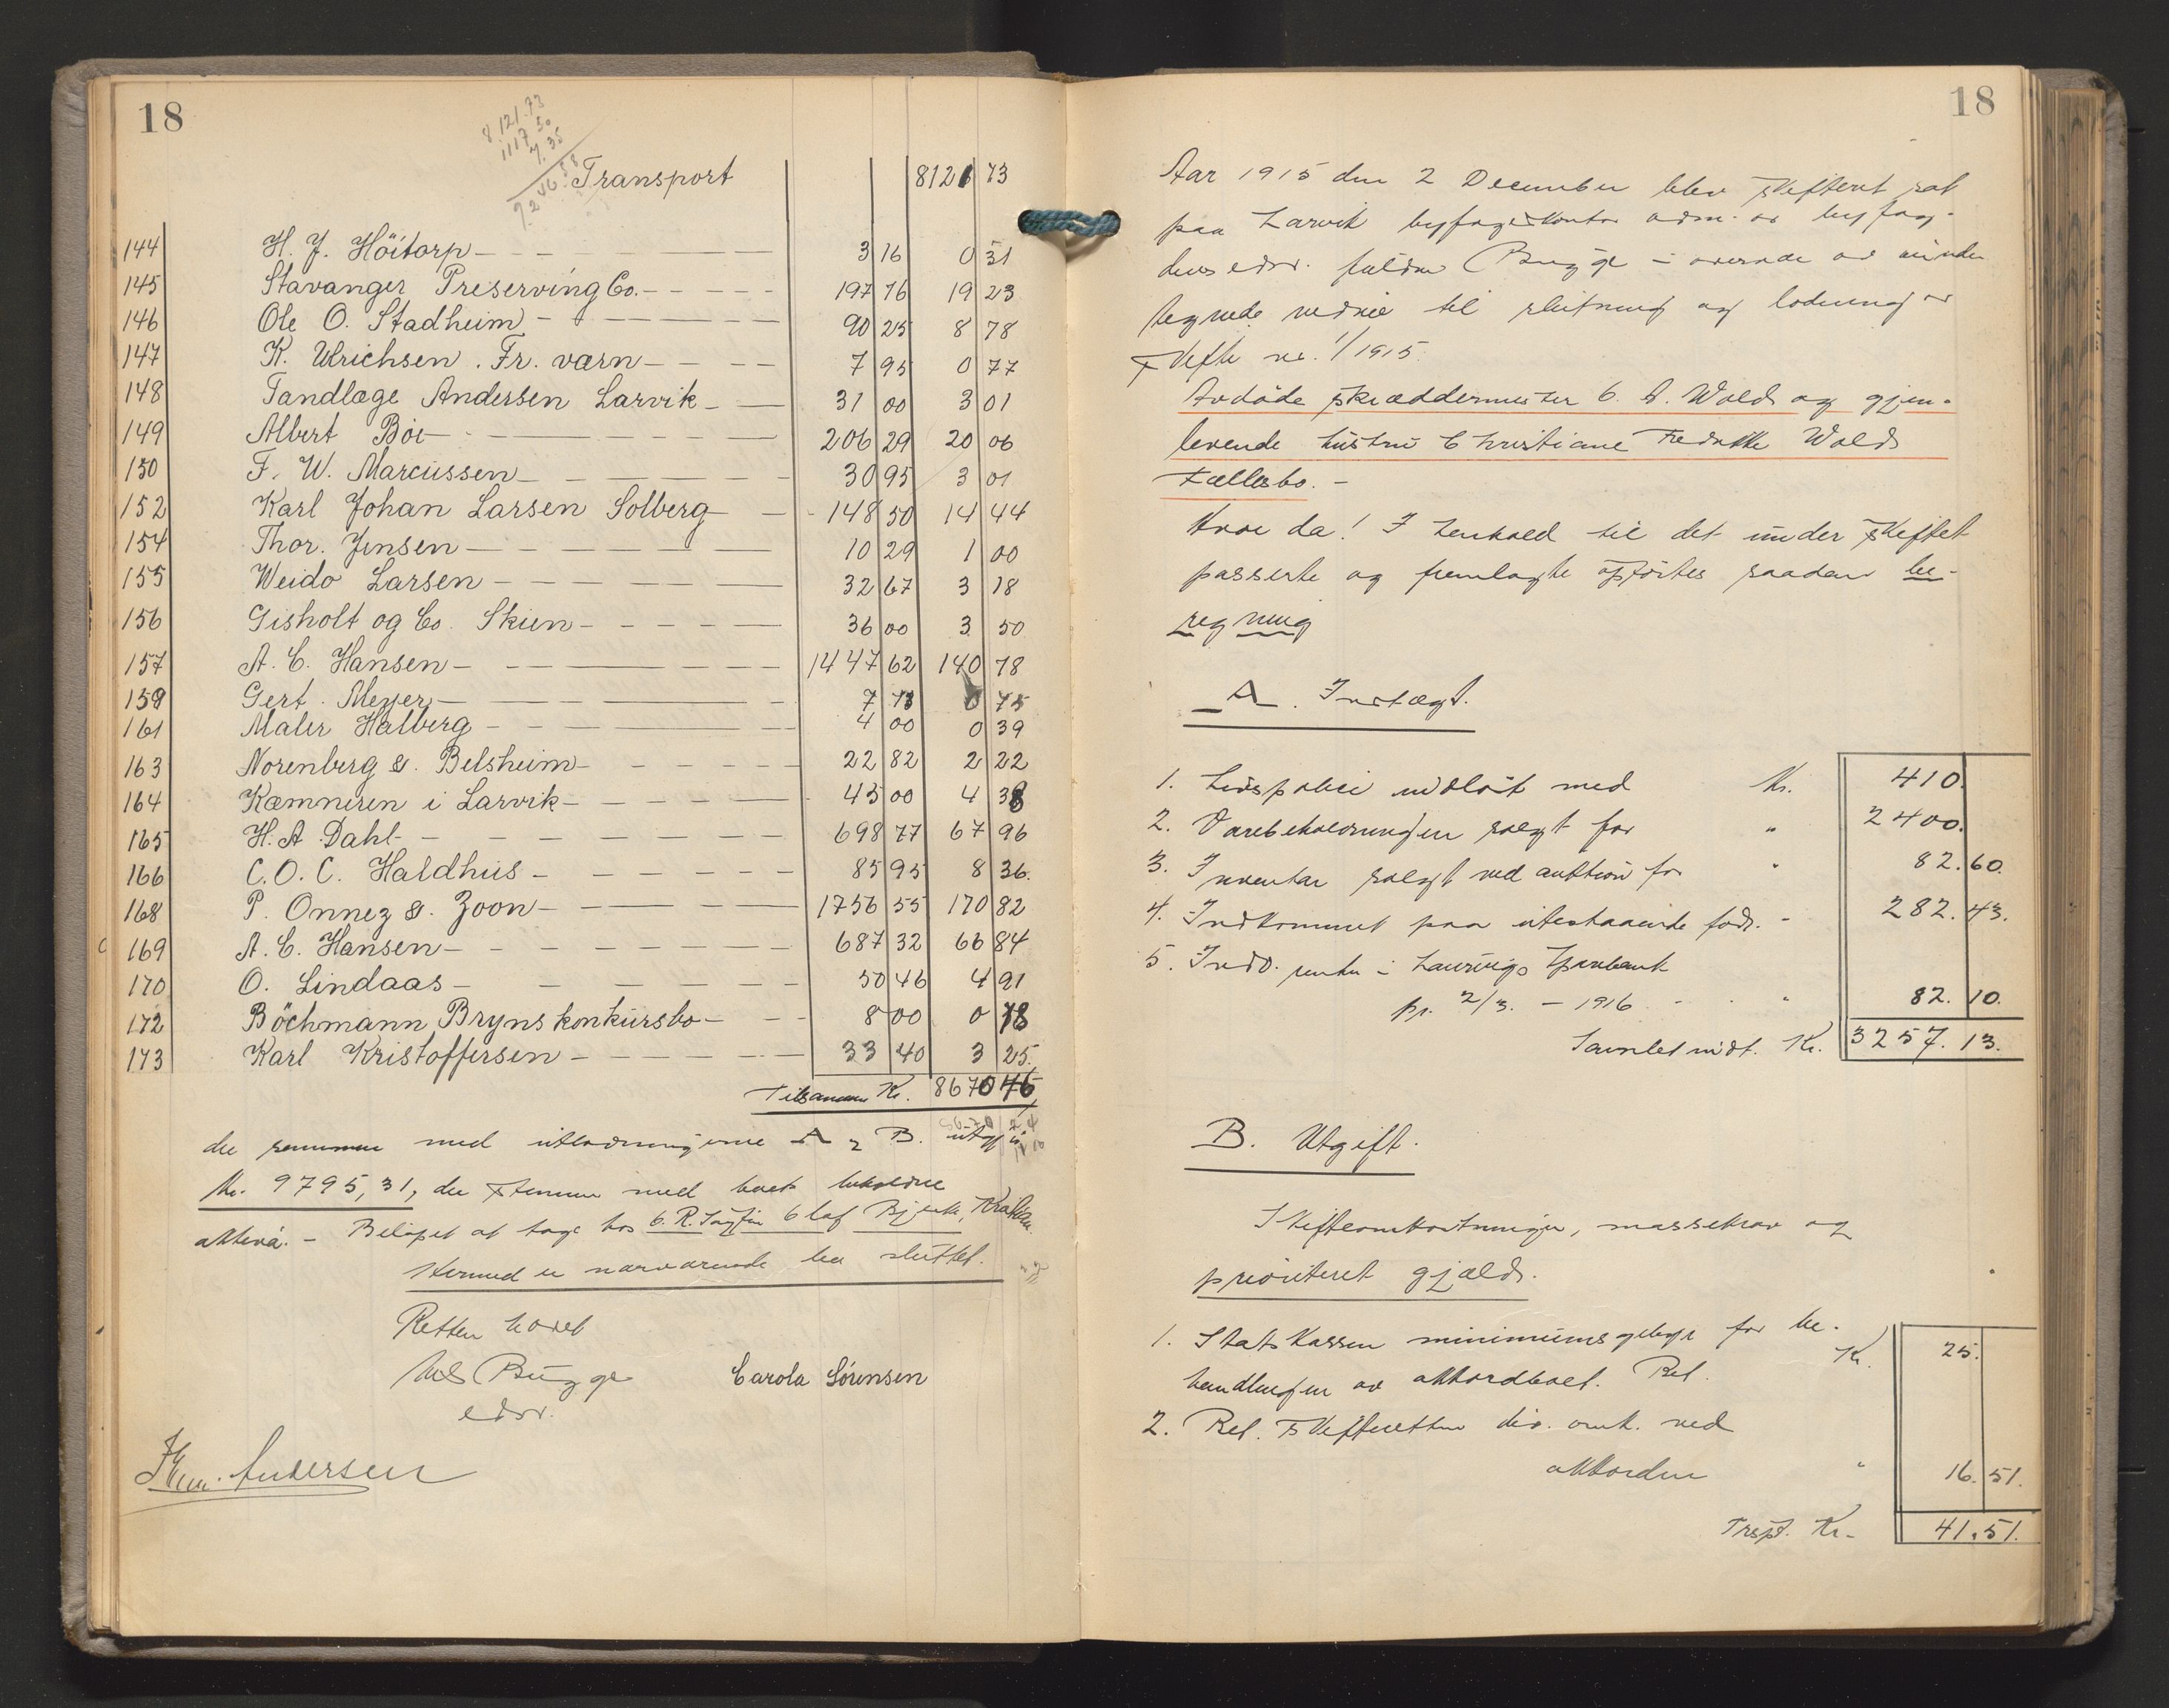 18
8 121.73
1117 50
7.35
9246.58
Transport 8121 73
144 H. J. Höitorp 3 16 0 31
145 Stavanger Preserving Co. 197 76 19 23
146 Ole O. Stadheim 90 25 8 78
147 K. Ulrichsen. Fr. værn 7 95 0 77
148 Tandlæge Andersen Larvik 31 00 3 01
149 Albert Böe 206 29 20 06
150 F. W. Marcussen 30 95 3 01
152 Karl Johan Larsen Solberg 148 50 14 44
154 Thor. Jensen 10 29 1 00
155 Weido Larsen 32 67 3 18
156 Gisholt og Co. Skien 36 00 3 50
157 A. C. Hansen 1447 62 140 78
159 Gert. Meyer 7 73 0 75
161 Maler Halberg 4 00 0 39
163 Norenberg & Belsheim 22 82 2 22
164 Kæmneren i Larvik 45 00 4 38
165 H. A. Dahl 698 77 67 96
166 C. O. C. Haldhus 85 95 8 36.
168 P. Onnez & Zoon 1756 55 170 82
169 A. C. Hansen 687 32 66 84
170 O. Lindaas 50 46 4 91
172 Böchmann Bryns konkursbo 8 00 0 78
173 Karl Kristoffersen 33 40 3 25.
Tilsammen Kr. 8670 46
der sammen med utlodningerne A & B. utgjör
Kr. 9795,31, der stemmer med boets beholdne
aktiva. - Belöpet at tage hos
Hermed er nærværende bo sluttet.
Retten hævet
Bugge Carola Sörensen
edsv.
Andersen
18
Aar 1915 den 2 December blev skifteret sat
paa Larvik byfogedkontor adm. av byfog-
dens edsv. fuldm Bugge i overvær av under
tegnede vidne til slutning og lodning av
skifte nr. 1/1915.
Avdöde skræddermester C. A. Wold og gjen-
levende hustru Christiane Fredrikke Wolds
Fællesbo. -
Hvor da! I henhold til det under skiftet
passerte og fremlagte opförtes saadan be-
regning
A. Indtægt.
1. Livspolice indlöst med Kr. 410.
2. Varebeholdningen solgt for " 2400.
3. Inventar solgt ved auktion for " 82.60.
4. Indkommet paa utestaaende fodr. - 282.43.
5. Indv. renter i Laurvigs Sparebank
pr. 2/3. - 1916 " 82.10.
Samlet indt. Kr. 3257.13.
B. Utgift.
Skifteomkostninger, massekrav og
prioriteret gjæld.
1. Statskassen minimumsgebyr for be-
handlingen av akkordboet. Ret. Kr. 25.
2. Ret. Skifteretten div. omk. ved
akkorden " 16.51.
Trspt. Kr. 41.51.